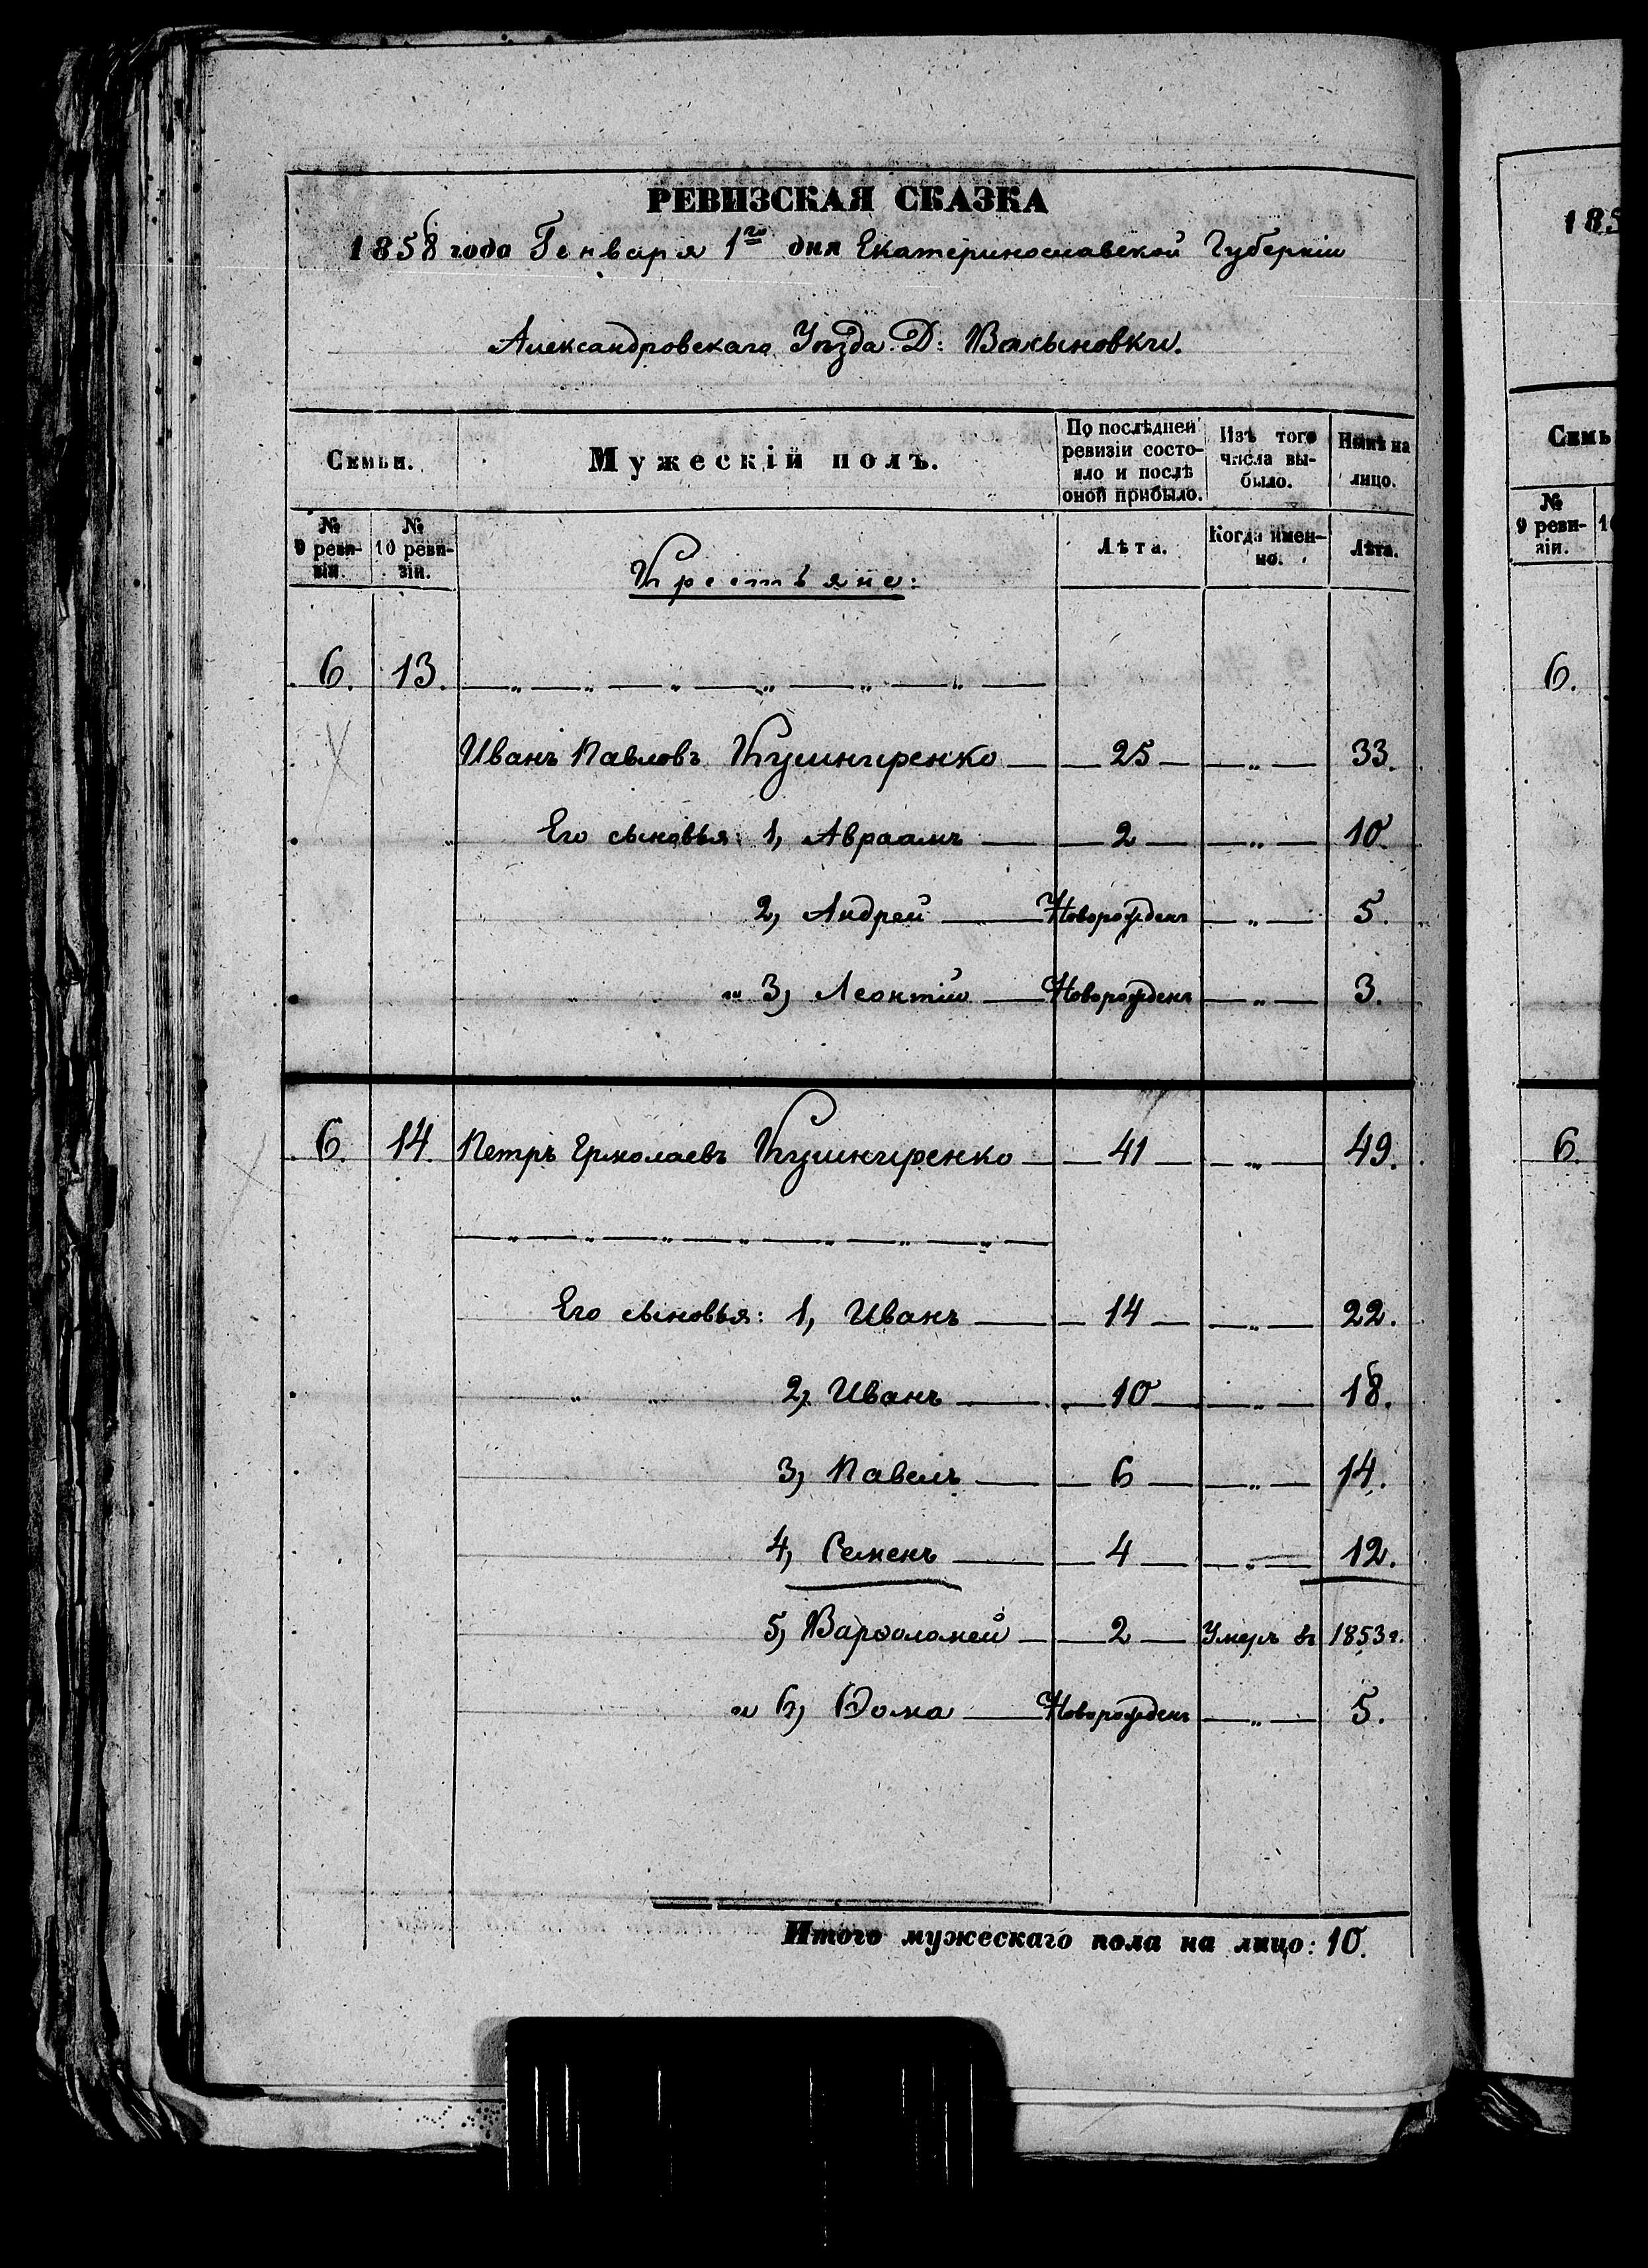 РЕВИЗСКАЯ СКАЗКА
1858 года Генваря 1го дня Екатеринославской Губерніи
Александровскаго Уѣзда Д:
Семьи.
Мужескій полъ.
По послѣдней ревизіи состояло и послѣ оной прибыло.
Изъ того числа выбыло.
Нынѣ на лицо.
№ 9 ревизіи.
№ 10 ревизіи.
Крестьяне:
Лѣта.
Когда именно.
Лѣта.
6. 13.
Иванъ Павловъ Кушниренко 25 „ 33.
Его сыновья: 1, Авраамъ 2 „ 10.
2, Андрей Новорожденъ „ 5.
и 3, Леонтій Новорожденъ „ 3.
6. 14. Петръ Ермолаевъ Кушниренко 41 „ 49.
Его сыновья: 1, Иванъ 14 „ 22.
„ „ 2, Иванъ 10 „ 18.
3, Павелъ 6 „ 14.
4, Семенъ 4 „ 12.
5, Варѳоломей 2 Умеръ въ 1853 г.
и 6, Ѳома Новорожденъ „ 5.
Итого мужескаго пола на лицо: 10.
185
Семь
№ 9 ревизіи.
6.
6.